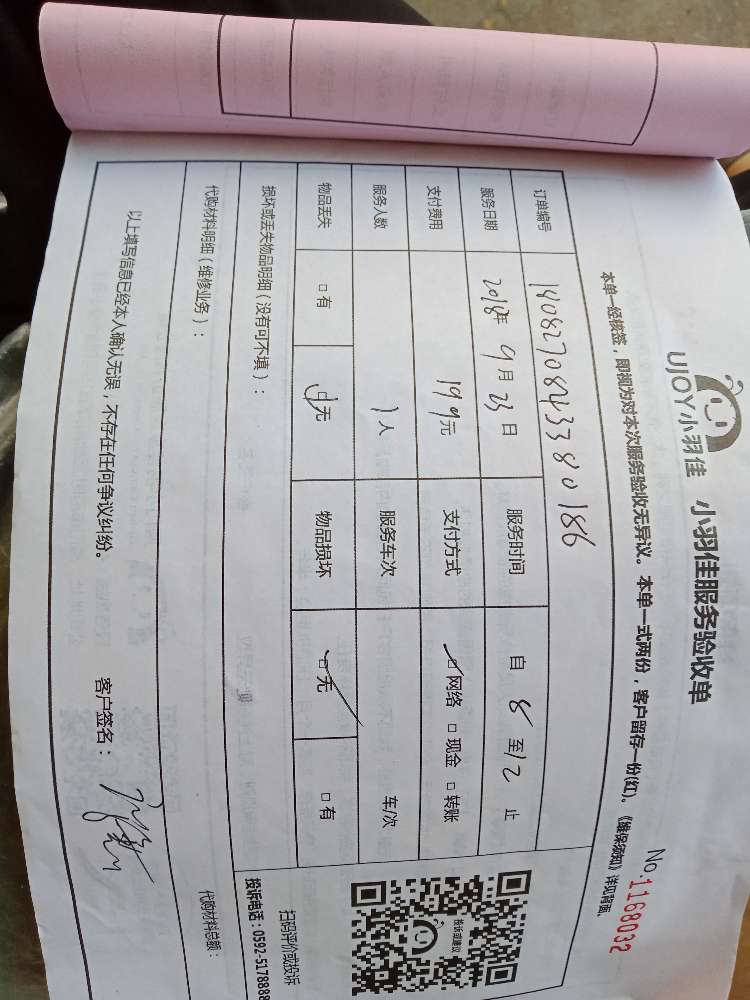 UJOY小羽佳 小羽佳服务验收单
No.1168032
本单一经核签，即视为对本次服务验收无异议。本单一式两份，客户留存一份(红)。《维保须知》详见背面。
订单编号 18082708243380186
服务日期 2018年9月23日 服务时间 自8至12止
支付费用 199元 支付方式 □网络 □现金 □转账
服务人数 1人 服务车次 车/次
物品丢失 □有 □无 物品损坏 □无 □有
损坏或丢失物品明细（没有可不填）：
代购材料明细（维修业务）：
代购材料总额：
以上填写信息已经本人确认无误，不存在任何争议纠纷。 客户签名：
投诉或建议
扫码评价或投诉
投诉电话：0592-5178888